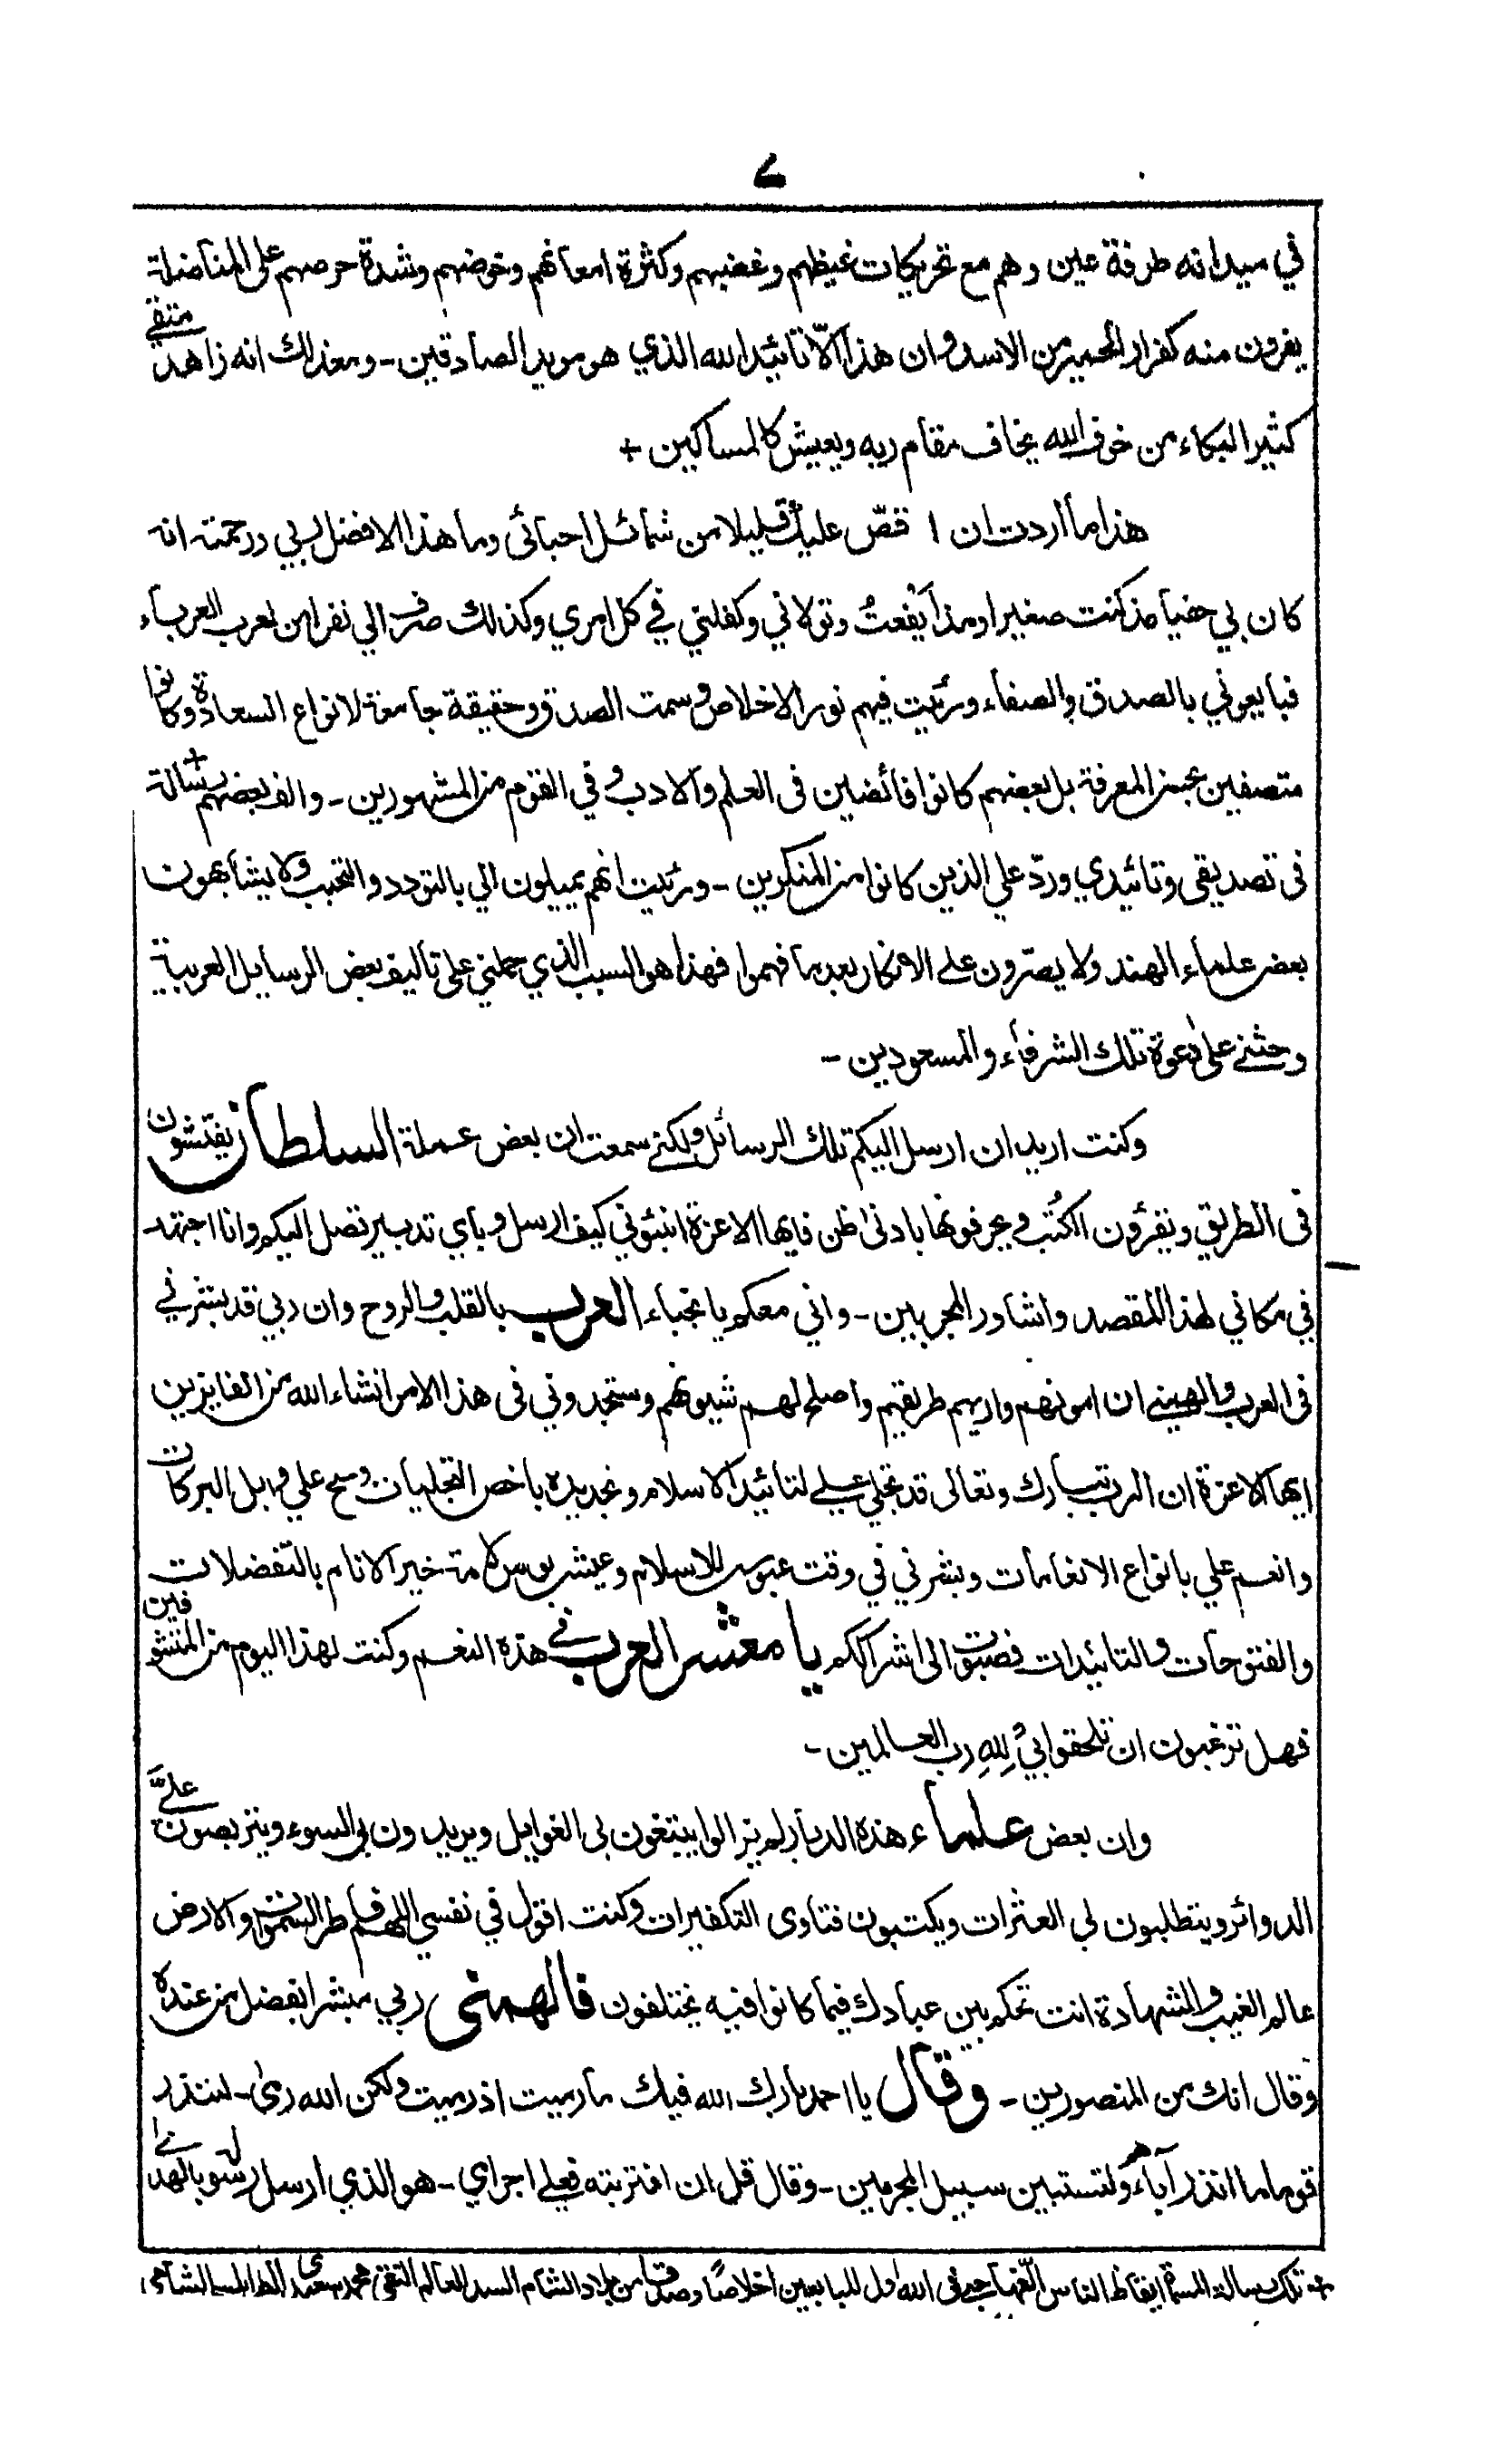 ٧
في ميدانه طرفة عين وهم مع تحريكات غيظهم وغضبهم وكثرة امعانهم وخوضهم وشدة حرصهم على المناضلة
يفرون منه كفرار الحمير من الاسد وان هذا الّا تائيد الله الذي هو مويد الصادقين - ومعذلك انه زاهد متقي
كثير البكاء من خوف الله يخاف مقام ربه ويعيش كالمساكين +
هذا ما أردت ان اقصّ عليك قليلا من شمائل احبائى وما هذا الا فضل ربي ورحمته انه
كان بي حفيا مذ كنت صغيرا ومذ أيْفعتُ وتولاني وكفلني في كل امري وكذلك صرف الي نفرا من العرب العرباء
فبايعوني بالصدق والصفاء ورئيت فيهم نور الاخلاص وسمت الصدق وحقيقة جامعة لانواع السعادة وكانوا
متصفين بحسن المعرفة بل بعضهم كانوا فائضين فى العلم والادب وفي القوم من المشهورين - والف بعضهم رسالة+
فى تصديقى وتائيدي وردّ علي الذين كانوا من المنكرين - ورئيت انهم يميلون الي بالتودد والتحبب ولا يشابهون
بعض علماء الهند ولا يصرّون على الانكار بعد ما فهموا فهذا هو السبب الذي حملني على تأليف بعض الرسايل العربية
وحثنے على دعوة تلك الشرفاء والمسعودين -
وكنت اريد ان ارسل اليكم تلك الرسائل ولكنے سمعت ان بعض عملة السلطان يفتشون
فى الطريق ويقرؤن الكُتب ويحرفونها بادنى ظن فايها الاعزة انبئوني كيف ارسل وباي تدبير تصل اليكم وانا اجتهد
في مكاني لهذا المقصد واشاور المجربين - واني معكم يا نجباء العرب بالقلب والروح وان ربي قد بشرني
فى العرب والهمنے ان امونهم واريهم طريقهم واصلح لهم شيونهم وستجدوني فى هذا الامر انشاء الله من الفايزين
ايها الاعزة ان الرب تبارك وتعالى قد تجلى علي لتائيد الاسلام وتجديده باخص التجليات وسح علي وابل البركات
وانعم علي بانواع الانعامات وبشرني في وقت عبوس للاسلام وعيش بوس لامة خير الانام بالتفضلات
والفتوحات والتائيدات فصبوت الى اشراككم يا معشر العرب في هذه النعم وكنت لهذا اليوم من المتشوفين
فهل ترغبون ان تلحقوا بي لِلهِ رب العالمين -
وان بعض علماء هذه الديار لم يزالوا يبتغون بى الغوايل ويريدون بى السوء ويتربصون علىَّ
الدوائر ويتطلبون لى العثرات ويكتبون فتاوى التكفيرات وكنت اقول في نفسي اللهم فاطر السموات والارض
عالم الغيب والشهادة انت تحكم بين عبادك فيما كانوا فيه يختلفون فالهمنى ربي مبشرا بفضل من عنده
وقال انك من المنصورين - وقال يا احمد بارك الله فيك ما رميت اذ رميت ولكن الله رمى - لتنذر
قوما ما انذر آباءهم ولتستبين سبيل المجرمين - وقال قل ان افتريته فعلي اجرامي - هو الذي ارسل رسوله بالهدى
+ تلك رسالة المسماة ايقاظ الناس الّفها حبى فى الله اول المبايعين اخلاصًا وصدقا من بلاد الشام السيد العالم التقى محمد سعيدى الطرابلسى الشامى